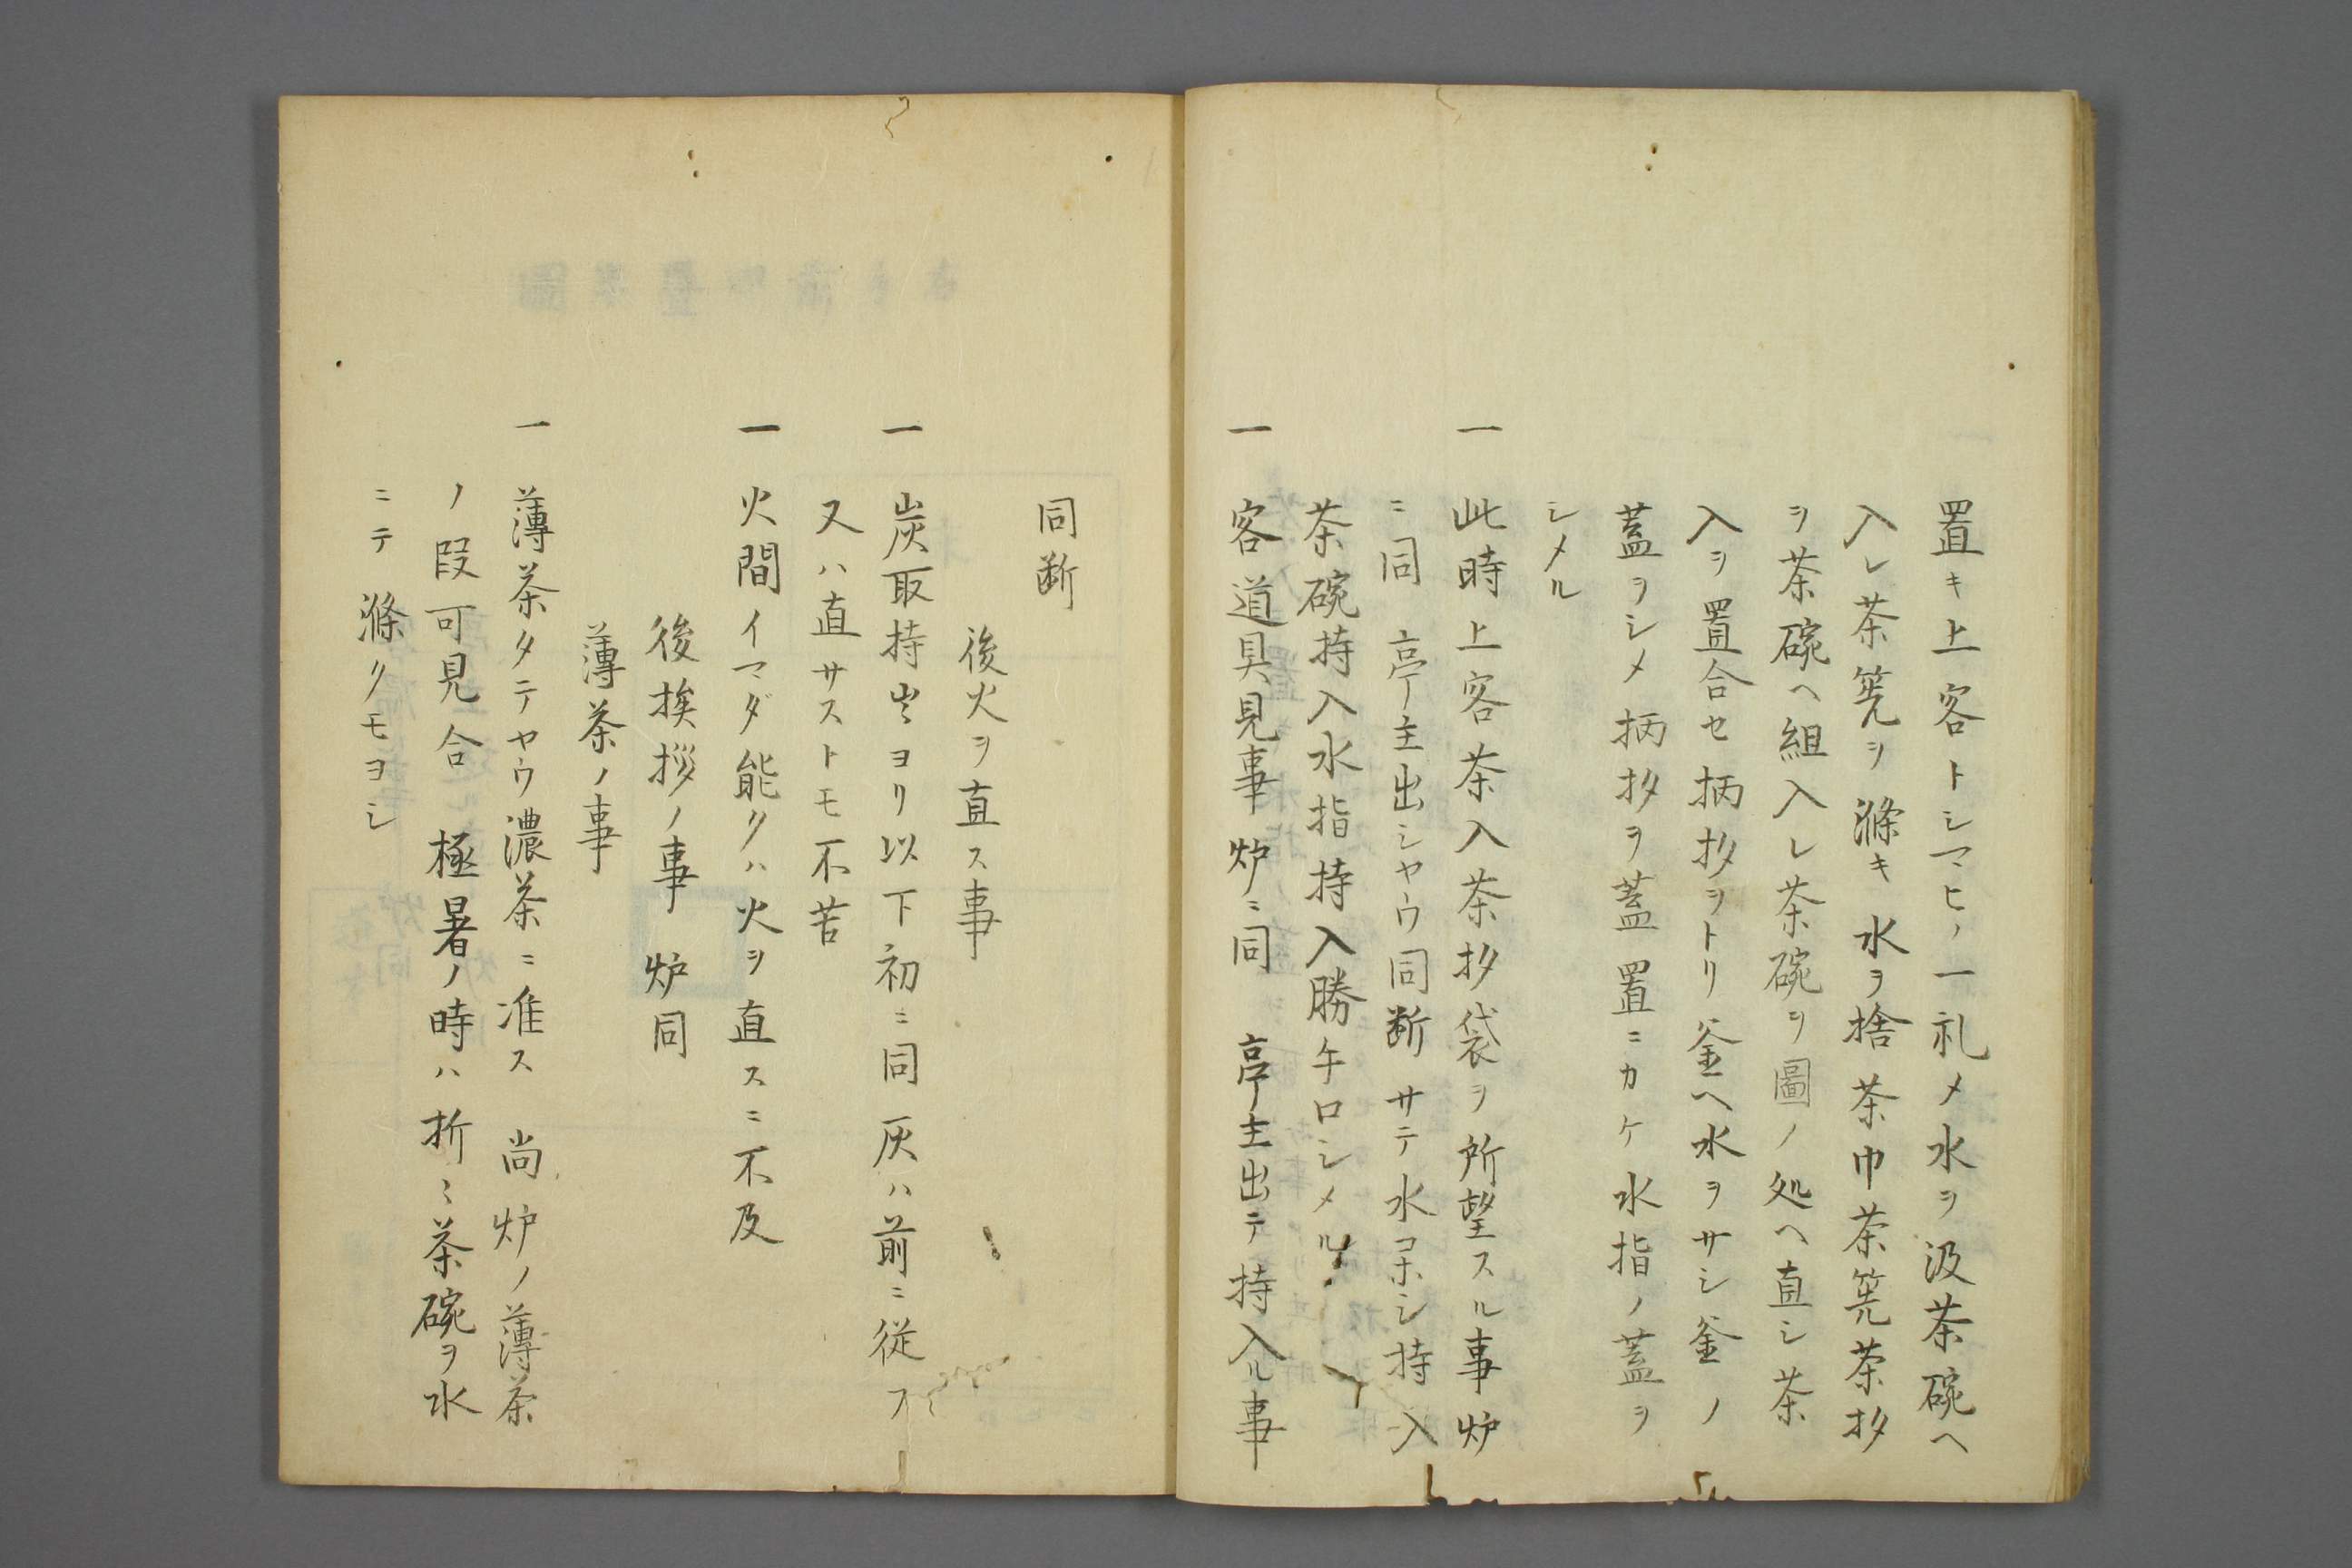 置キ上客トシマヒノ一礼メ水ヲ汲茶碗ヘ
入レ茶筅ヲ滌キ水ヲ捨茶巾茶筅茶杓
ヲ茶碗ヘ組入レ茶碗ヲ圖ノ処ヘ直シ茶
入ヲ置合セ柄杓ヲトリ釜ヘ水ヲサシ釜ノ
蓋ヲシメ柄杓ヲ蓋置ニカケ水指ノ蓋ヲ
シメル
一 此時上客茶入茶杓袋ヲ所望スル事炉
ニ同 亭主出シヤウ同断サテ水コホシ持入
茶碗持入水指持入勝手口シメル
一 客道具見事炉ニ同 亭主出テ持入ル事
同断
後火ヲ直ス事
一 炭取持出ヨリ以下初ニ同灰ハ前ニ従フ
又ハ直サストモ不苦
一 火間イマダ能クハ火ヲ直スニ不及
後挨拶ノ事 炉同
薄茶ノ事
一 薄茶タテヤウ濃茶ニ准ス 尚炉ノ薄茶
ノ段可見合 極暑ノ時ハ折〻茶碗ヲ水
ニテ滌クモヨシ